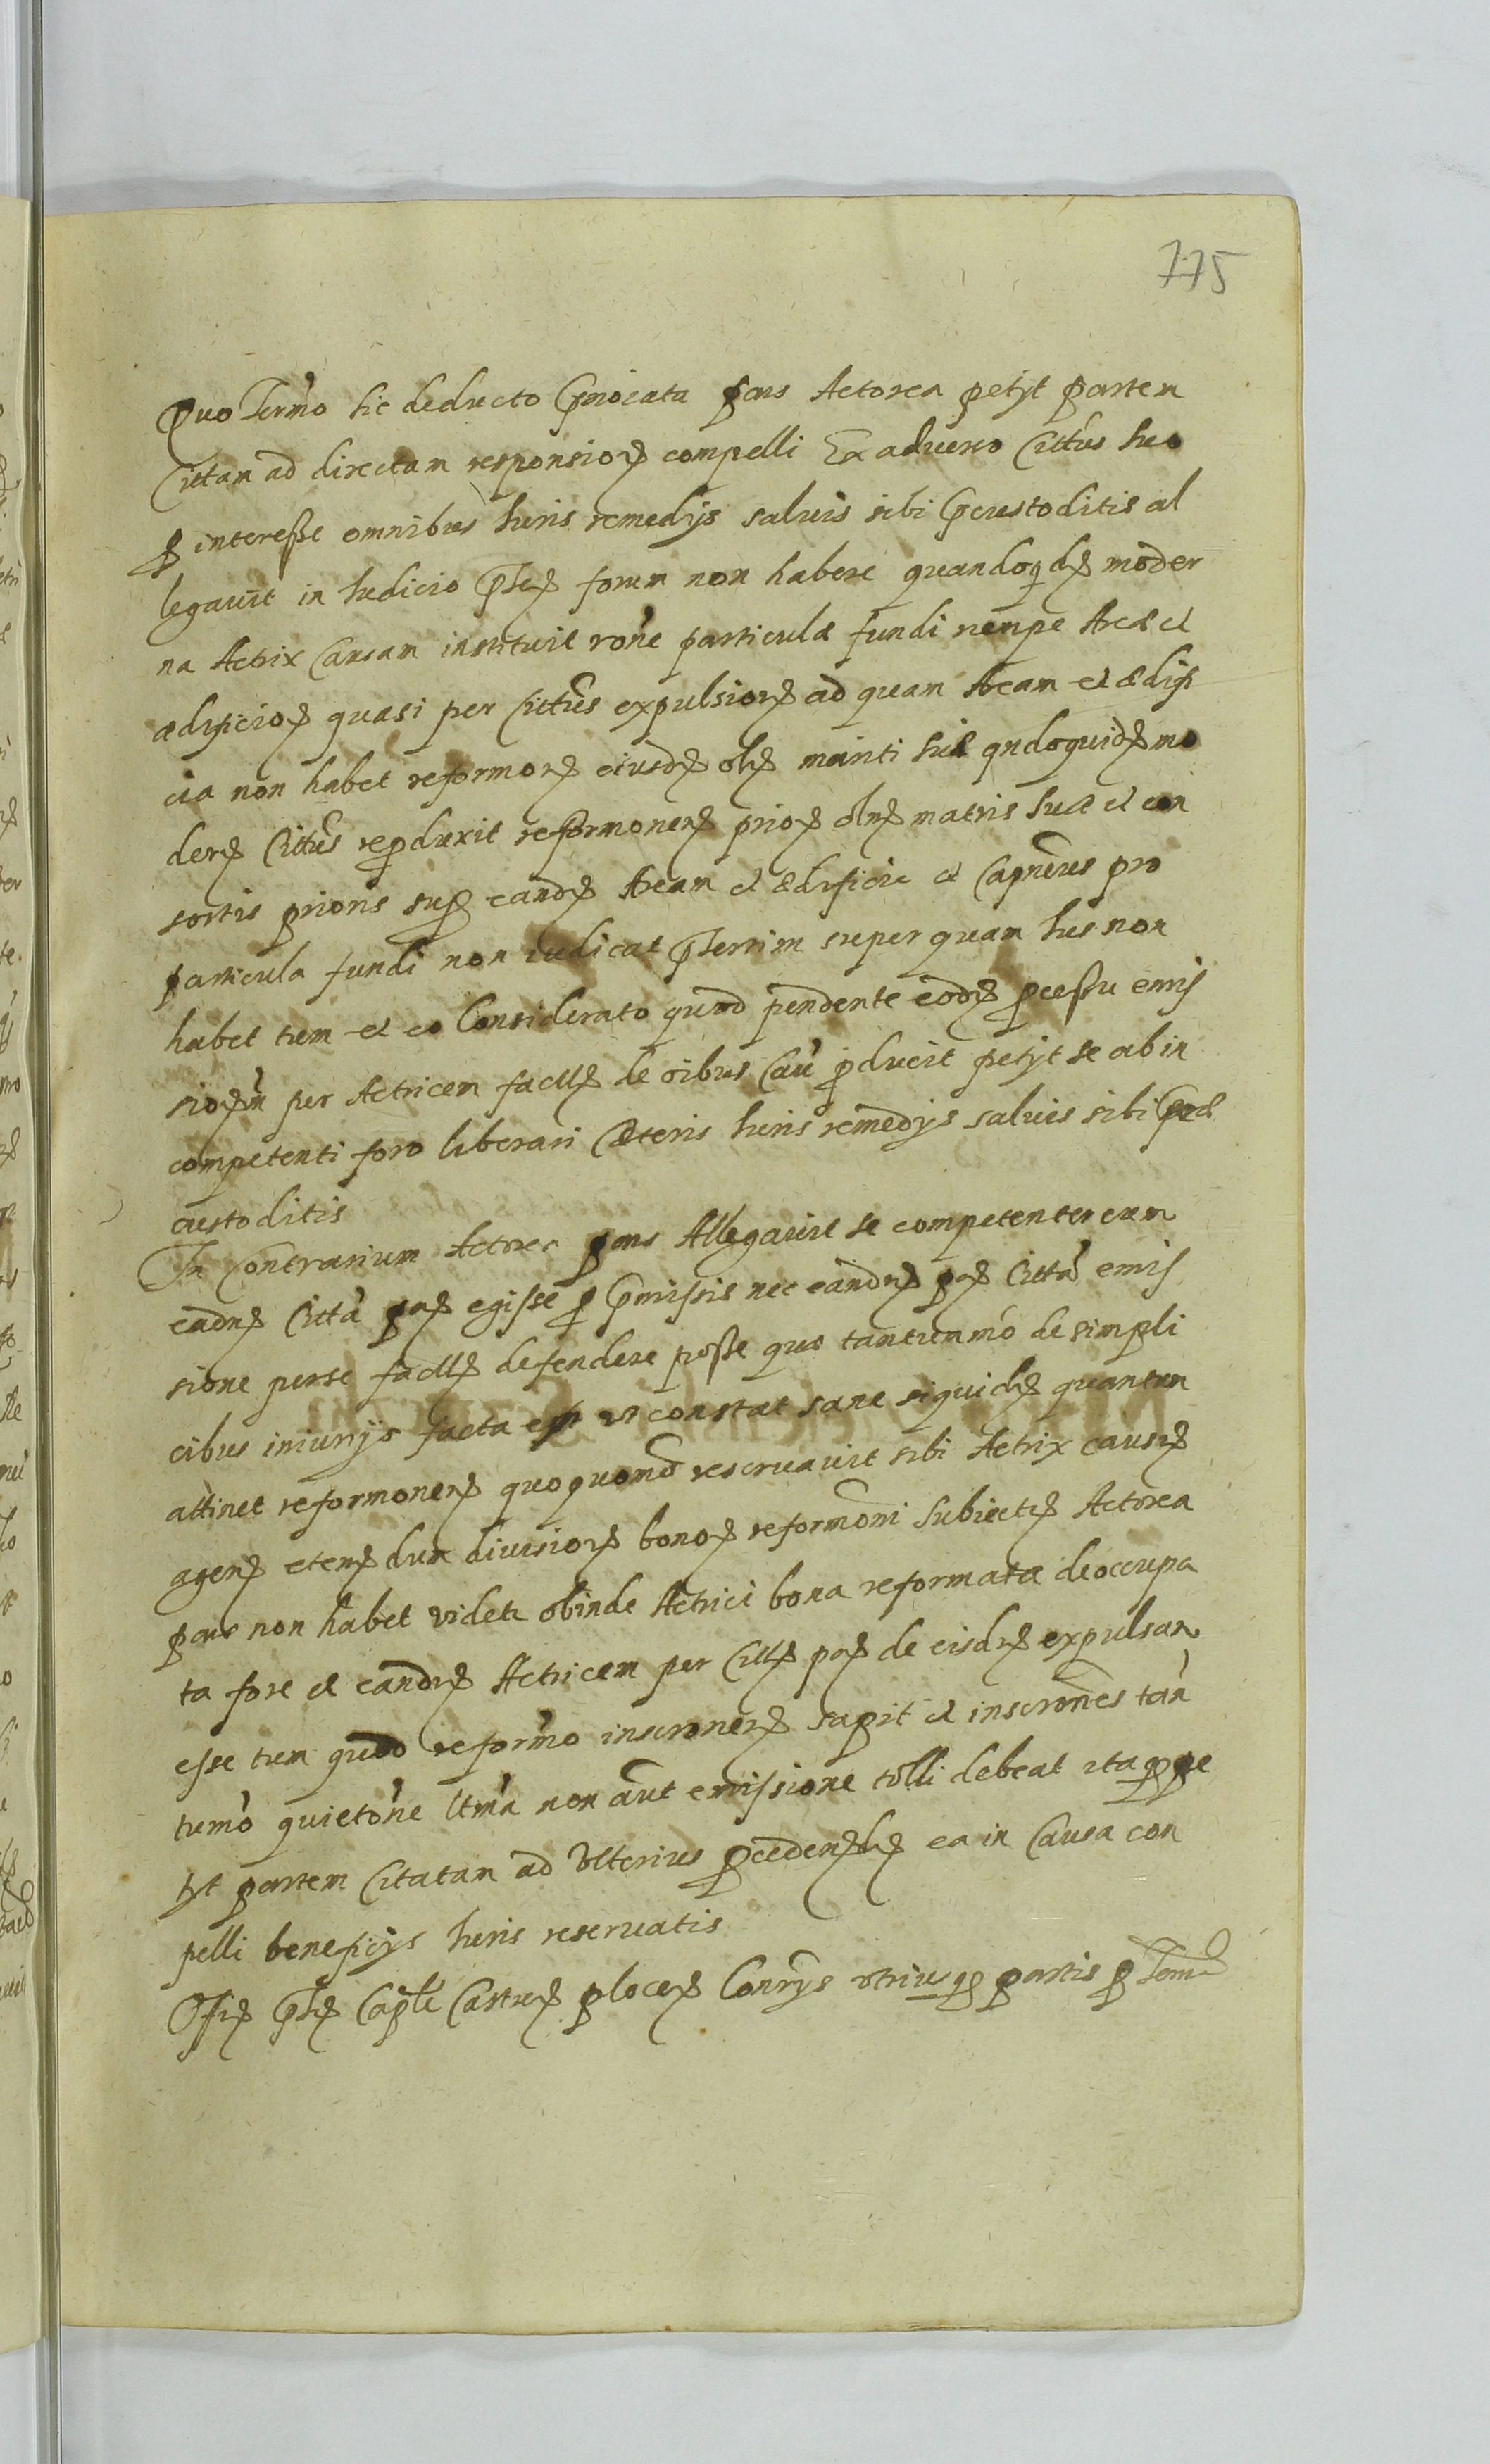 775
Quo Termo sic deducto Pmoiata pars Actorea petyt partem
Cittam ad directam responsioȝ compelli Ex adverso Cittus suo
p interesse omnibus Iuris remedijs salvis sibi Pcustoditis al
legavit in Iudicio forum non habere quandoqdȝ moder
na Actrix Causam instituit rone particulæ fundi nempe Areæ et
ædificioȝ quasi per Cittus expulsioȝ ad quam Aream et ædifi
cia non habet reformoȝ eiusdȝ olȝ mariti sui qndoquidȝ mo
derȝ Cittus reproduxit reformonenȝ prioȝ olȝ matris suæ et con
sortis prioris sup eandȝ Aream et ædificia et Capneus pro
particula fundi non iudicat super quam Ius non
habet tum et eo Considerato quod pendente eodȝ pcessu emis
per Actricem factȝ de oibus Cau producit petyt se ab in
competenti foro liberari Cæteris Iuris remedijs salvis sibi præ
custoditis
In Contrarium Actorea pars Allegavit se competenter cum
eadȝ Citta paȝ egisse p Pmissis nec eandȝ paȝ Citta emis
sione perse factȝ defendere posse quæ tantunmo de simpli
cibus iniurijs facta est ut constat sane siquidȝ quantum
attinet reformonenȝ quoquomo reservavit sibi Actrix causȝ
agenȝ etenȝ dum divisioȝ bonoȝ reformoni subiectȝ Actorea
pars non habet videtr obinde Actrici bona reformata deoccupa
ta fore et eandȝ Actricem per Cittȝ paȝ de eisdȝ expulsam
esse tum quod reformo inscronenȝ sapit et inscrones tan
tumo quietone ltma non aut emissione tolli debeat itaqȝ pe
tyt partem Citatam ad Ulterius pcedenȝ ea in Causa com
pelli beneficijs Iuris reservatis
Offȝ Caple Castrȝ ploceȝ Conrvs utriusqȝ partis p